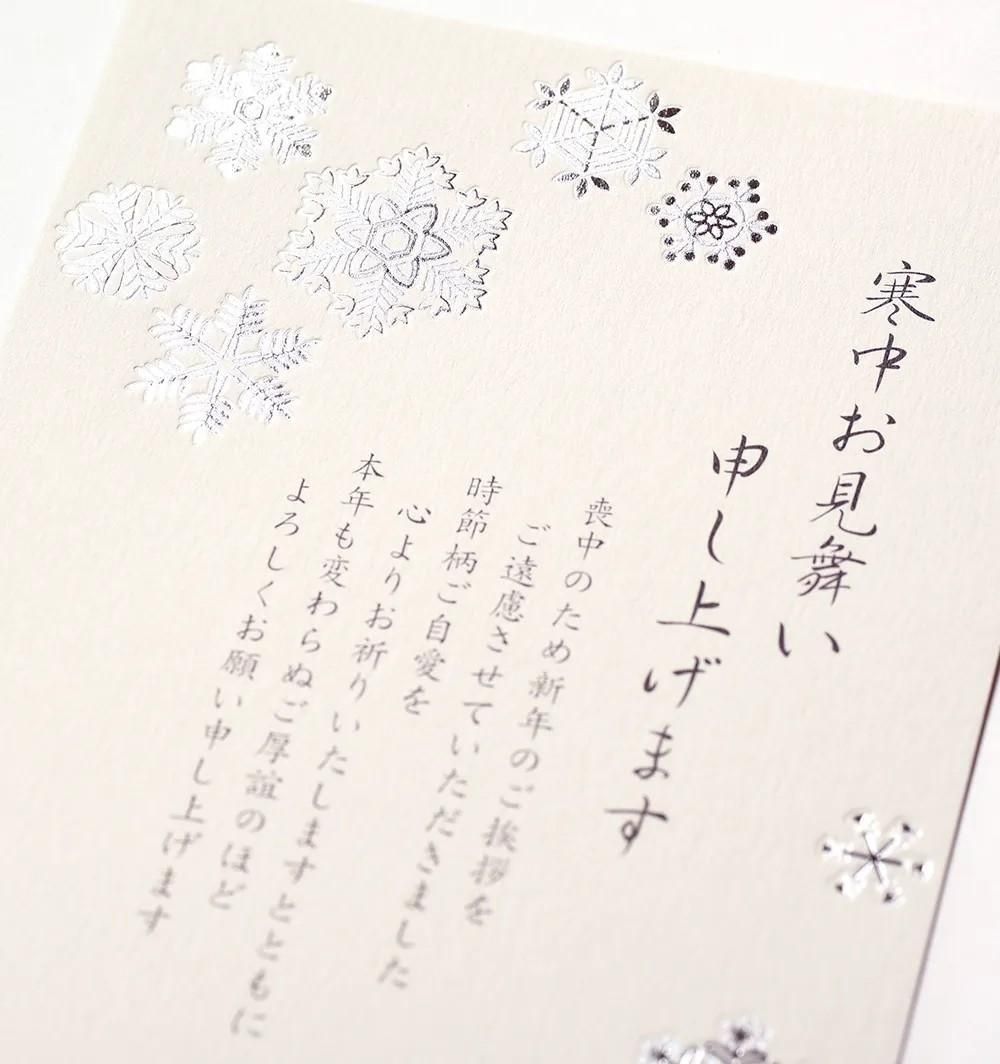 寒中お見舞い
申し上げます
喪中のため新年のご挨拶を
ご遠慮させていただきました
時節柄ご自愛を
心よりお祈りいたしますとともに
本年も変わらぬご厚誼のほど
よろしくお願い申し上げます